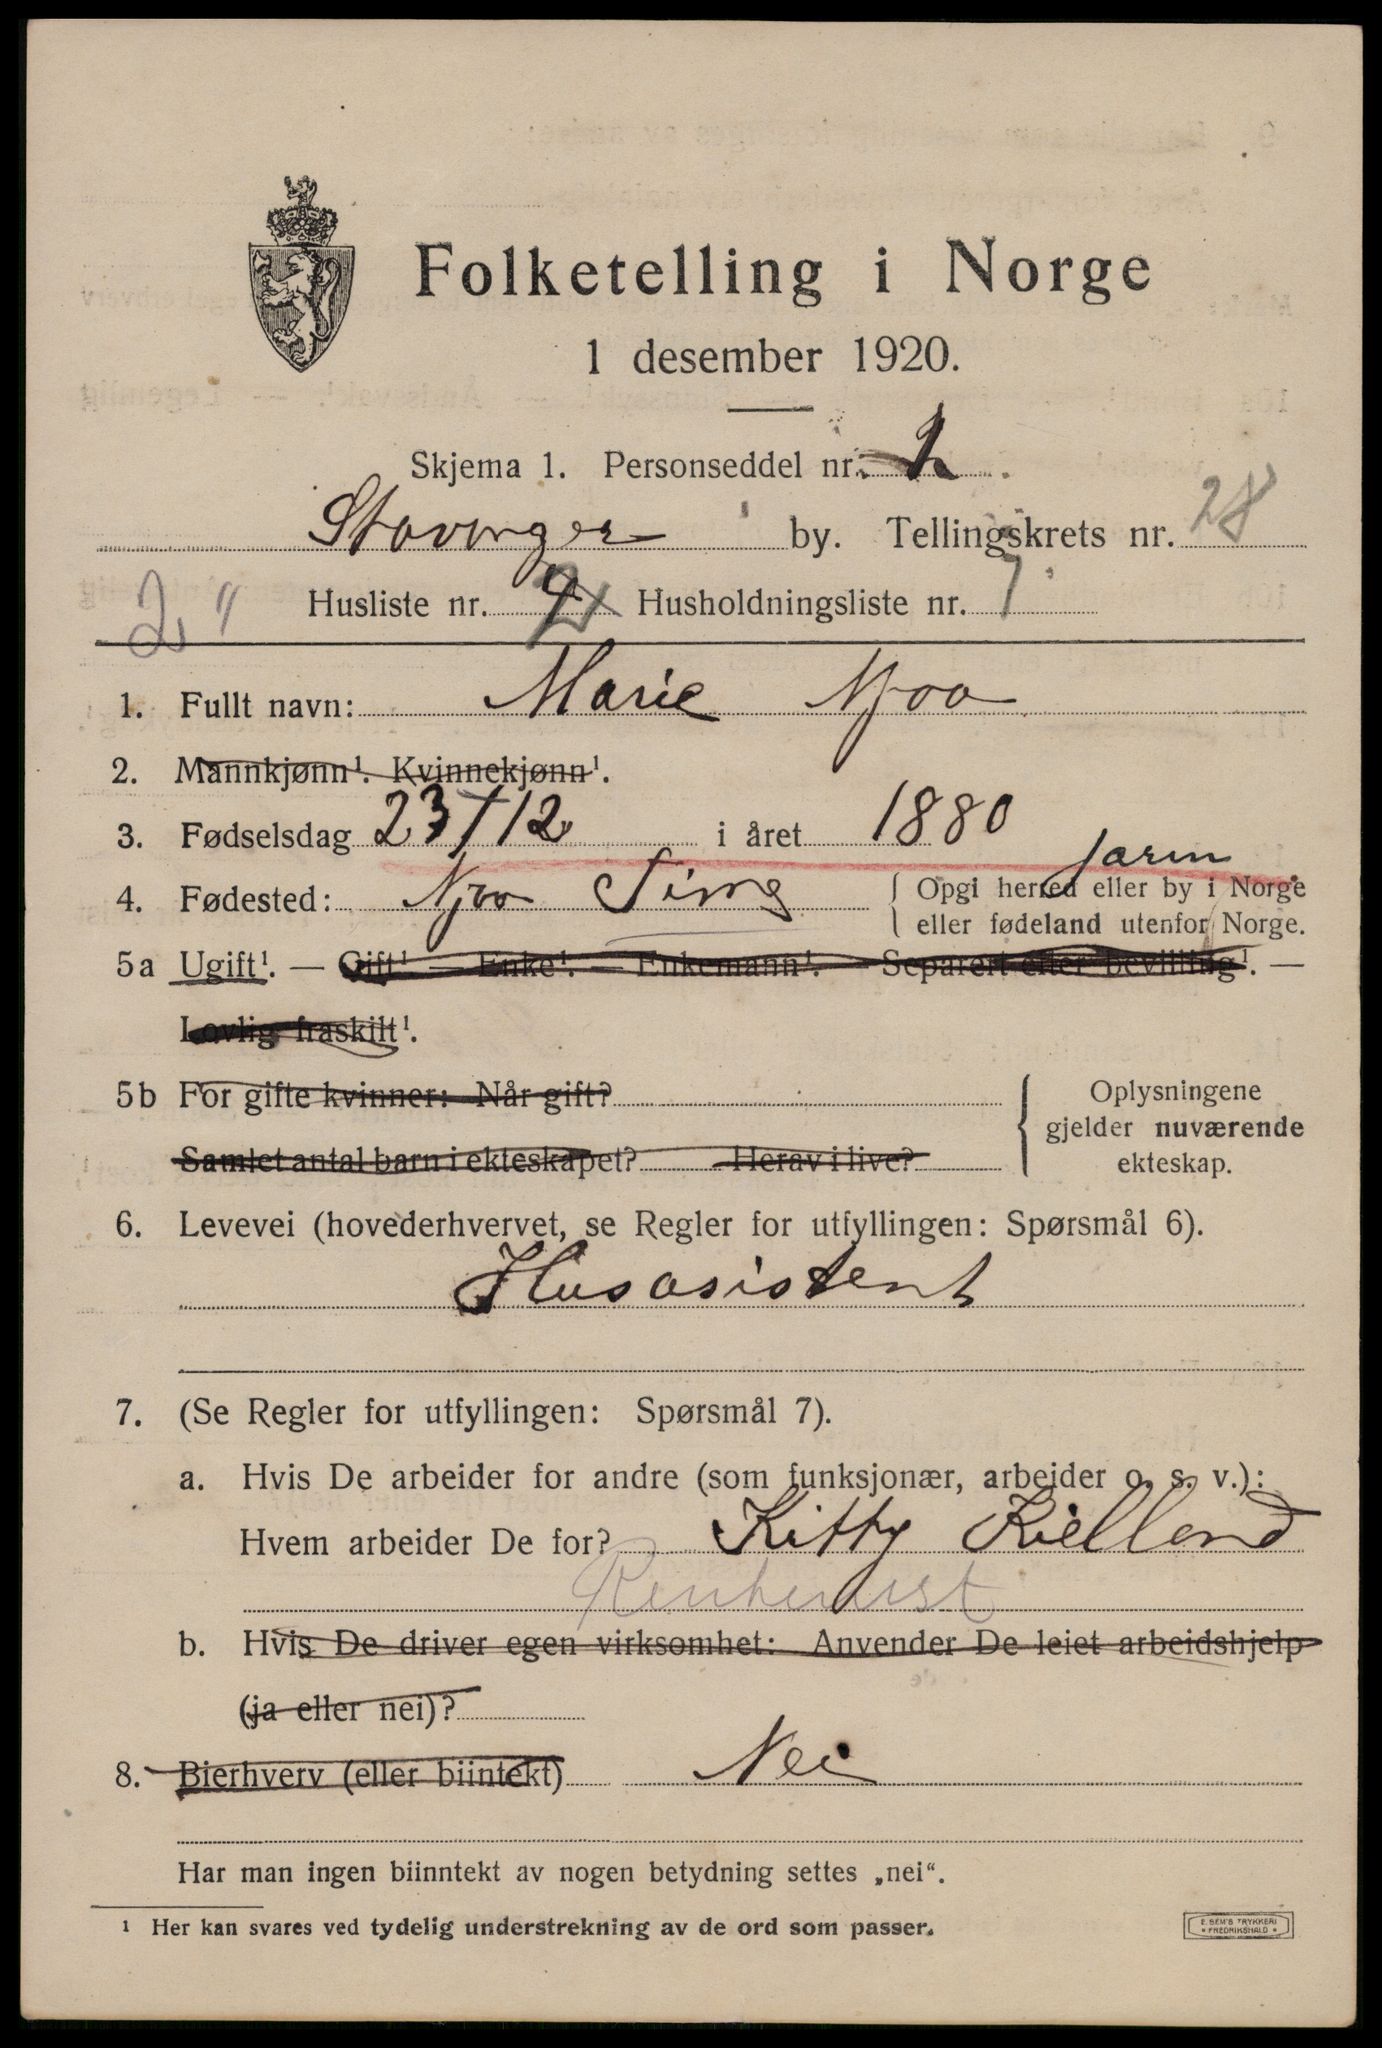 Folketelling i Norge
1 desember 1920.
Skjema 1. Personseddel nr. 1
Stavanger by. Tellingskrets nr. 28
2 4 Husliste nr. 4 Husholdningsliste nr. 1
1. Fullt navn: Marie Njaa
2. Mannkjønn¹. Kvinnekjønn¹.
3. Fødselsdag 23/12 i året 1880
Jaren
4. Fødested: Njaa Time { Opgi herred eller by i Norge
eller fødeland utenfor Norge.
5a Ugift¹. — Gift¹. — Enke¹. — Enkemann¹. — Separert efter bevilling¹. —
Lovlig fraskilt¹.
5b For gifte kvinner: Når gift?
Samlet antal barn i ekteskapet? Herav i live?
Oplysningene
gjelder nuværende
ekteskap.
6. Levevei (hovederhvervet, se Regler for utfyllingen: Spørsmål 6).
Husasistent
7. (Se Regler for utfyllingen: Spørsmål 7).
a. Hvis De arbeider for andre (som funksjonær, arbeider o. s. v.):
Hvem arbeider De for? Kitty Kielland
b. Hvis De driver egen virksomhet: Anvender De leiet arbeidshjelp
(ja eller nei)?
8. Bierhverv (eller biintekt) Nei
Har man ingen biinntekt av nogen betydning settes „nei“.
¹ Her kan svares ved tydelig understrekning av de ord som passer.
E. SEM'S TRYKKERI
* FREDRIKSHALD *